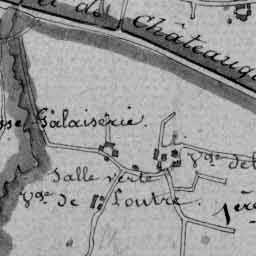 de Châteaugi
Galaiserie.
Salle verte
Vge de Loutre.
Vge de l
1ère